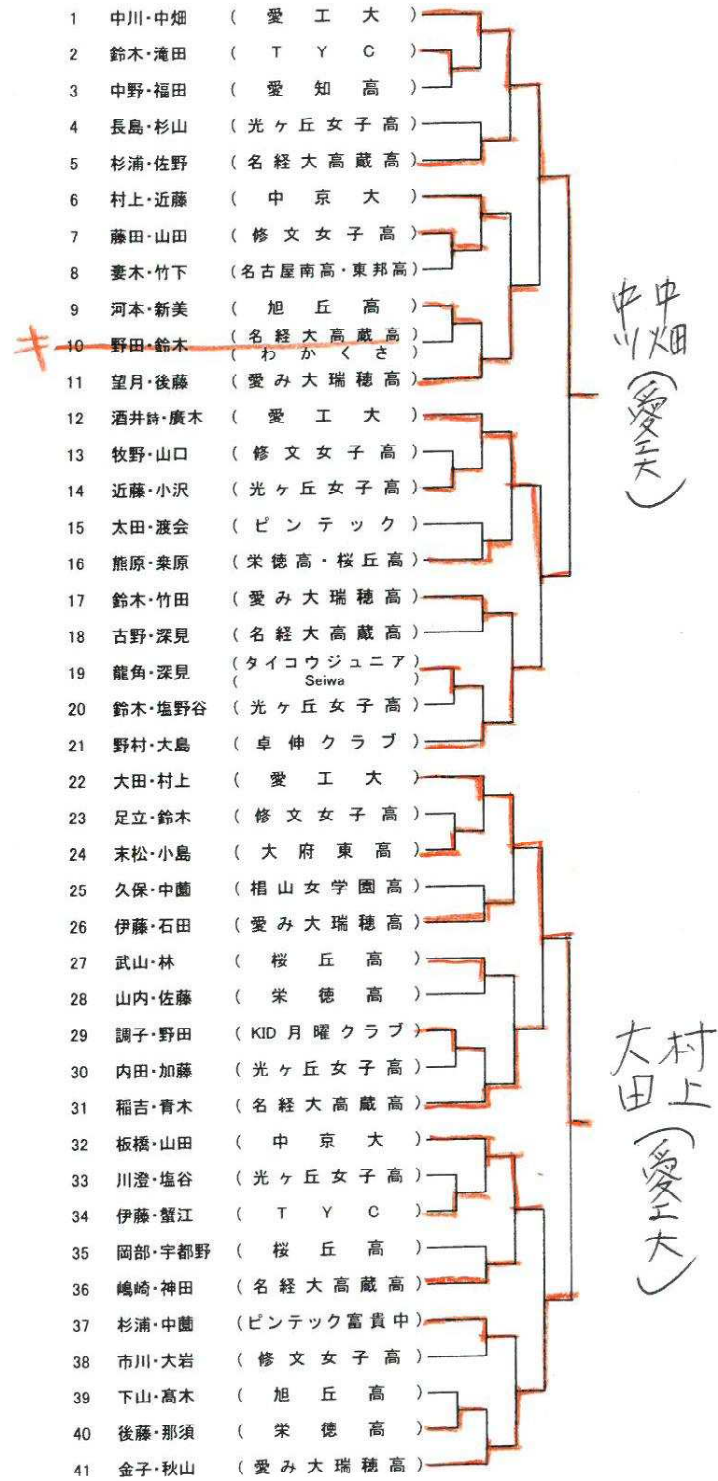 1 中川・中畑 (愛工大)
2 鈴木・滝田 (TYC)
3 中野・福田 (愛知高)
4 長島・杉山 (光ヶ丘女子高)
5 杉浦・佐野 (名経大高蔵高)
6 村上・近藤 (中京大)
7 藤田・山田 (修文女子高)
8 妻木・竹下 (名古屋南高・東邦高)
9 河本・新美 (旭丘高)
キ 10 野田・鈴木 (名経大高蔵高)
(わかくさ)
11 望月・後藤 (愛み大瑞穂高)
12 酒井詩・廣木 (愛工大)
13 牧野・山口 (修文女子高)
14 近藤・小沢 (光ヶ丘女子高)
15 太田・渡会 (ピンテック)
16 熊原・桒原 (栄徳高・桜丘高)
17 鈴木・竹田 (愛み大瑞穂高)
18 古野・深見 (名経大高蔵高)
19 龍角・深見 (タイコウジュニア)
(Seiwa)
20 鈴木・塩野谷 (光ヶ丘女子高)
21 野村・大島 (卓伸クラブ)
22 大田・村上 (愛工大)
23 足立・鈴木 (修文女子高)
24 末松・小島 (大府東高)
25 久保・中薗 (椙山女学園高)
26 伊藤・石田 (愛み大瑞穂高)
27 武山・林 (桜丘高)
28 山内・佐藤 (栄徳高)
29 調子・野田 (KID月曜クラブ)
30 内田・加藤 (光ヶ丘女子高)
31 稲吉・青木 (名経大高蔵高)
32 板橋・山田 (中京大)
33 川澄・塩谷 (光ヶ丘女子高)
34 伊藤・蟹江 (TYC)
35 岡部・宇都野 (桜丘高)
36 嶋崎・神田 (名経大高蔵高)
37 杉浦・中薗 (ピンテック富貴中)
38 市川・大岩 (修文女子高)
39 下山・髙木 (旭丘高)
40 後藤・那須 (栄徳高)
41 金子・秋山 (愛み大瑞穂高)
中畑
中川
(愛工大)
村上
大田
(愛工大)